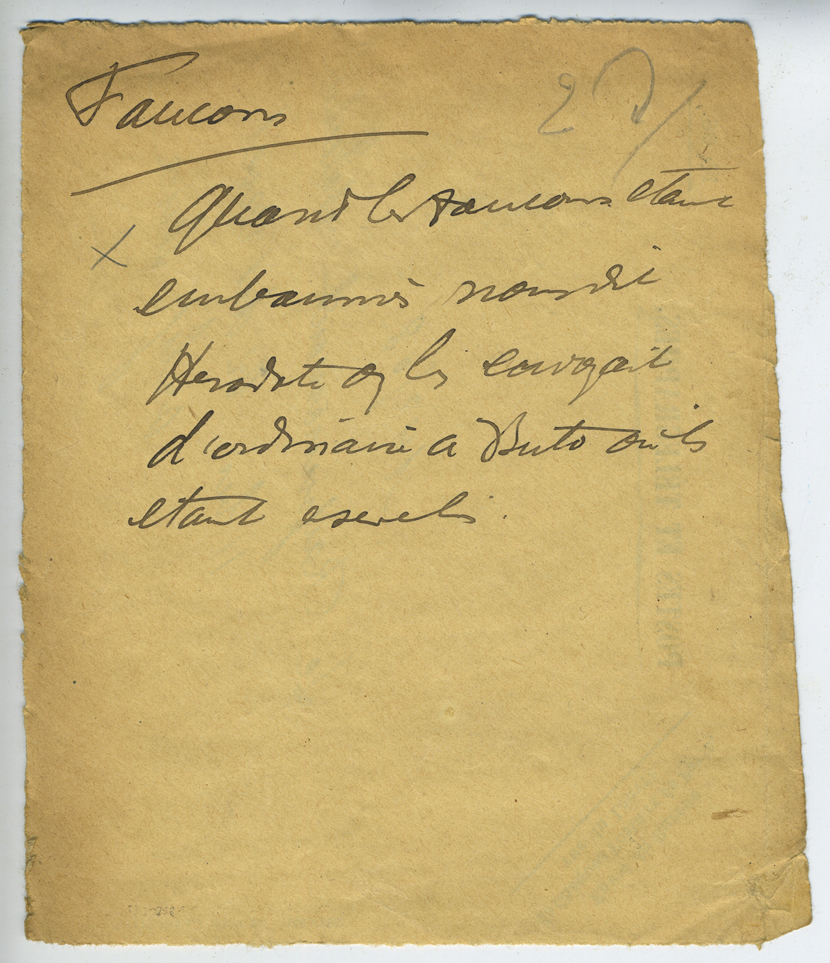 Faucons
X Quand les faucons etant
embaumés nous dit
Herodote on les envoyait
d'ordinaire a Buto où ils
etant